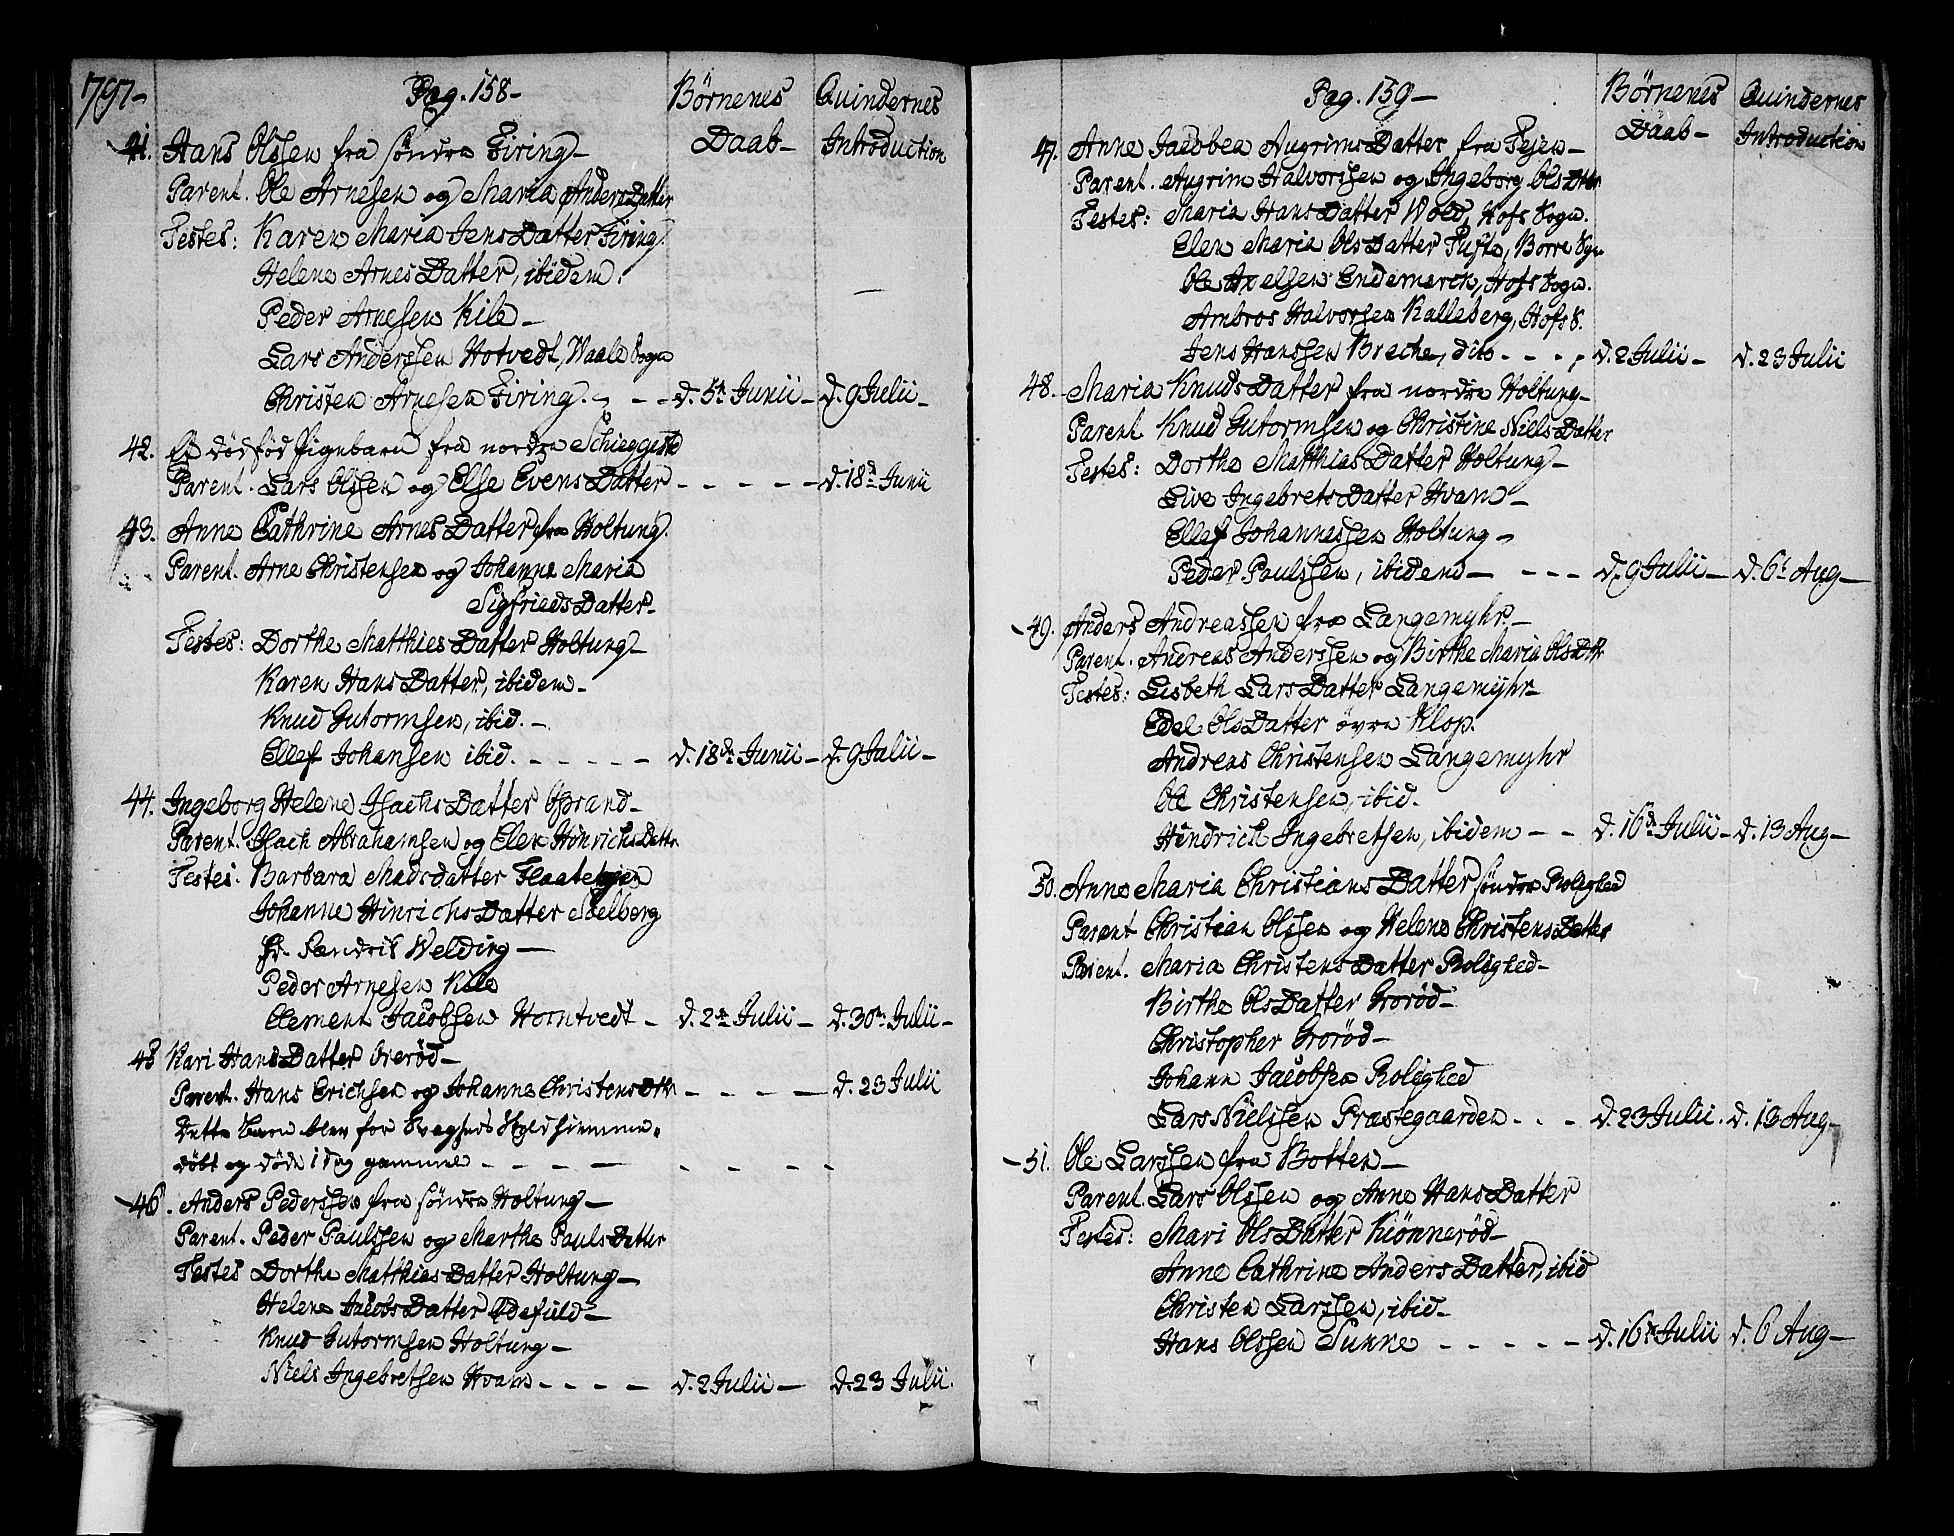 1797-
Pag. 158-
Børnenes Daab-
Quindernes Introduction
41. Hans Olssen fra søndre Firing-
Parent. Ole Arnesen og Maria AndersDatter
Testes: Karen Maria JensDatter Firing.
Helene ArnesDatter, ibidem.
Peder Arnesen Kile-
Lars Anderssen Hotvedt, Waale Sogn
Christen Arnesen Firing. - - - d. 5te Junii - d. 9 Julii-
42. Et dødfød Pigebarn fra nordre
Parent. Lars Olssen og Else EvensDatter - - - - - d. 18de Junii
43. Anne Cathrine ArnesDatter fra Holtung.
Parent. Arne Christensen og Johanne Maria
SigfriedsDatter-
Testes: Dorthe MatthiesDatter Holtung-
Karen HansDatter, ibidem-
Knud Gutormsen, ibid.-
Ellef Johansen ibid. - - - - - d. 18de Junii - d. 9 Julii-
44. Ingeborg Helene IsachsDatter Obrand-
Parent. Isach Abrahamsen og Elen HinrichsDattr
Testes. Barbara Madsdatter
Johanne HinrichsDatter Solberg
Hr. Welding-
Peder Arnesen Kile
Clement Jacobsen Horntvedt - d. 2de Julii - d. 30te Julii-
45 Kari HansDatter Ørerød-
Parent. Hans Erichsen og Johanne ChristensDtr - - - - - d. 23 Julii
Dette Barn blev for Svagheds Skyld hiemme-
døbt og døde 1 dag gammel - - - - - - - -
46. Anders Pederssen fra søndre Holtung-
Parent. Peder Paulssen og Marthe PaulsDatter
Testes Dorthe MatthiasDatter Holtung-
Helene JacobsDatter
Knud Gutormsen Holtung-
Niels Ingebretsen Hvam - - - - d. 2 Julii - d. 23 Julii.
Pag. 159-
Børnenes Daab-
Quindernes Introduction
47. Anne Jacobea AugrimsDatter fra Fejen-
Parent. Augrim Halvorssen og Ingeborg OlsDttr
Testes: Maria HansDatter Wold, Hofs Sogn.
Elen Maria OlsDatter Tufte, Borre Sogn
Ole Axelsen Endemarck, Hofs Sogn.
Ambros Halvorsen Kalleberg, Hofs S.
Jens Hanssen Breche, dito - - - d. 2 Julii - d. 23 Julii
48. Maria KnudsDatter fra nordre Holtung-
Parent Knud Gutormsen og Christine NielsDatter
Testes: Dorthe MatthiasDatter Holtung-
Live IngebretsDatter Hvam-
Ellef Johannessen Holtung-
Peder Paulssen, ibidem - - - - d. 9 Julii - d. 6te Aug-
49. Anders Andreassen fra Langemyhr-
Parent. Andreas Anderssen og Birthe Maria OlsDtr
Testes: Lisbeth LarsDatter Langemyhr-
Edel OlsDatter øvre Klop.
Andreas Christensen Langemyhr
Ole Christensen, ibid.
Hendrich Ingebretsen, ibidem - - d. 16de Julii - d. 13 Aug-
50. Anne Maria ChristiansDatter søndre Rolighed
Parent Christian Olssen og Helene ChristensDatter
Parent. Maria ChristensDatter Rolighed-
Birthe OlsDatter Grorød-
Christopher Grorød-
Johann Jacobsen Rolighed
Lars Nielssen Præstegaarden - - - d. 23 Julii. d. 13 Aug-
51. Ole Larssen fra Botten-
Parent. Lars Olssen og Anne HansDatter
Testes: Mari OlsDatter Kiønnerød-
Anne Cathrine AndersDatter, ibid
Christen Larssen, ibid-
Hans Olssen Sunne - - - - - d. 16de Julii d. 6 Aug-